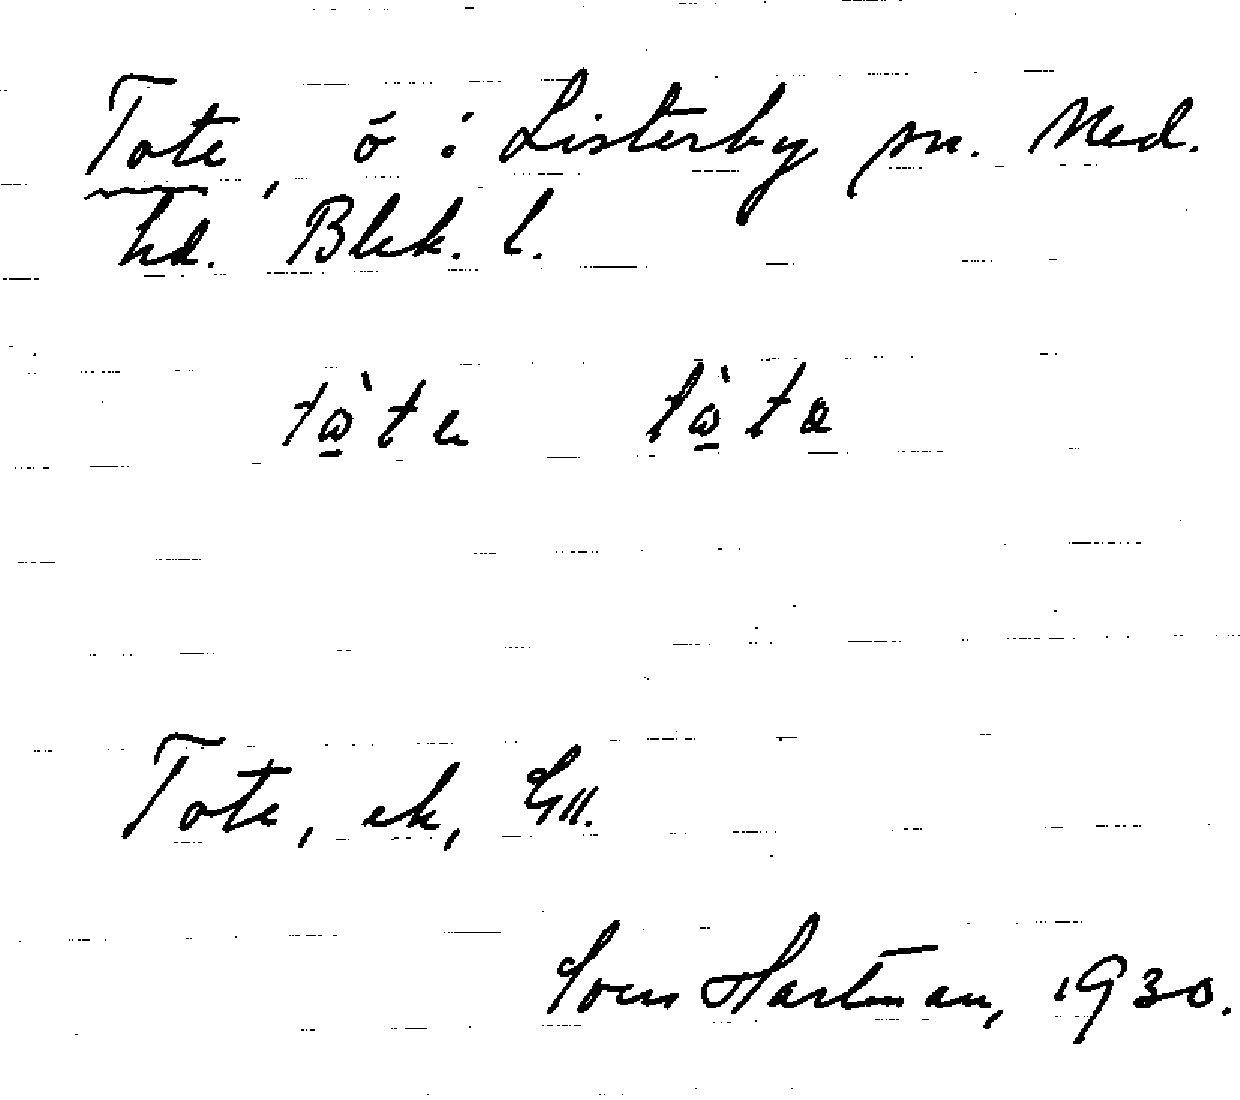 Tote, ö i Listerby sn. Med.
hd. Blek. l.
tὼ̲te tὼ̲ta
Tote, ek,
Sven Hartman, 1930.